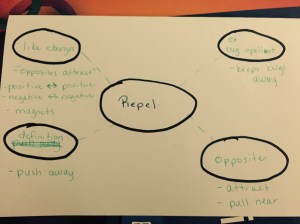 like charges
- opposites attract
- positive ↔ positive
- negative ↔ negative
- magnets
bug repellent
- keeps bugs away
Repel
definition
- push away
opposite
- attract
- pull near